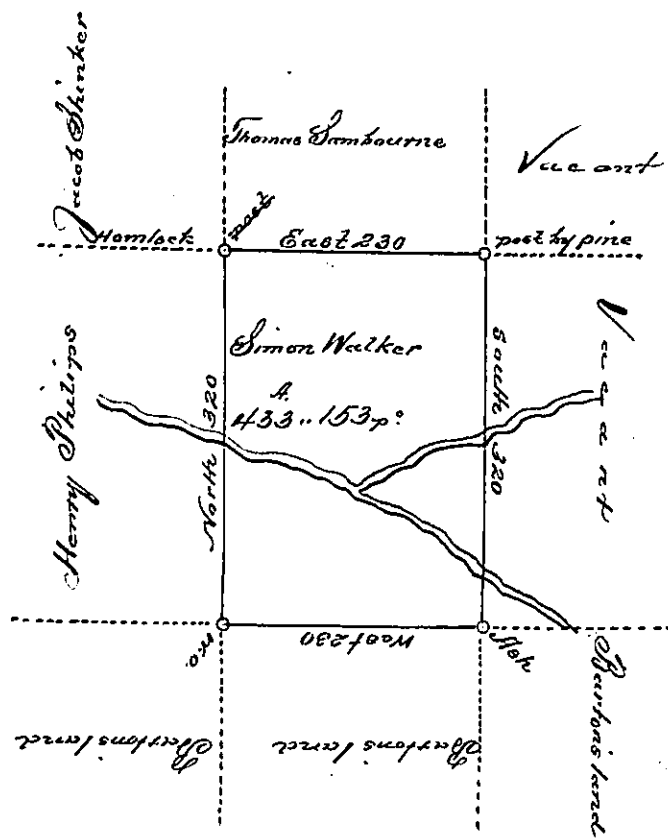 Jacob Shinker
Thomas Sambourne
Vacant
Hemlock
post
East 230
post by pine
Simon Walker
A.
433 .. 153 p:
Henry Philips
North 320
South 320
Vacant
W.O.
West 230
Ash
Bartons land
Bartons land
Barton's land